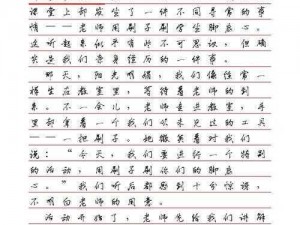 课堂上却发生了一件不同寻常的事
情——老师用刷子刷学生脚底心。
这听起来似乎有些不可思议，但确
实是我们亲身经历的一件事。
那天，阳光明媚，我们像往常一
样坐在教室里，等待着老师的到
来。不一会儿，老师走进教室，手
里却拿着一个我们从未见过的工具
——一把刷子。她微笑着对我们
说：“今天，我们要进行一个特别
的活动，用刷子刷你们的脚底
心。”我们听后都感到十分惊讶，
不明白老师的用意。
活动开始了，老师先给我们讲解